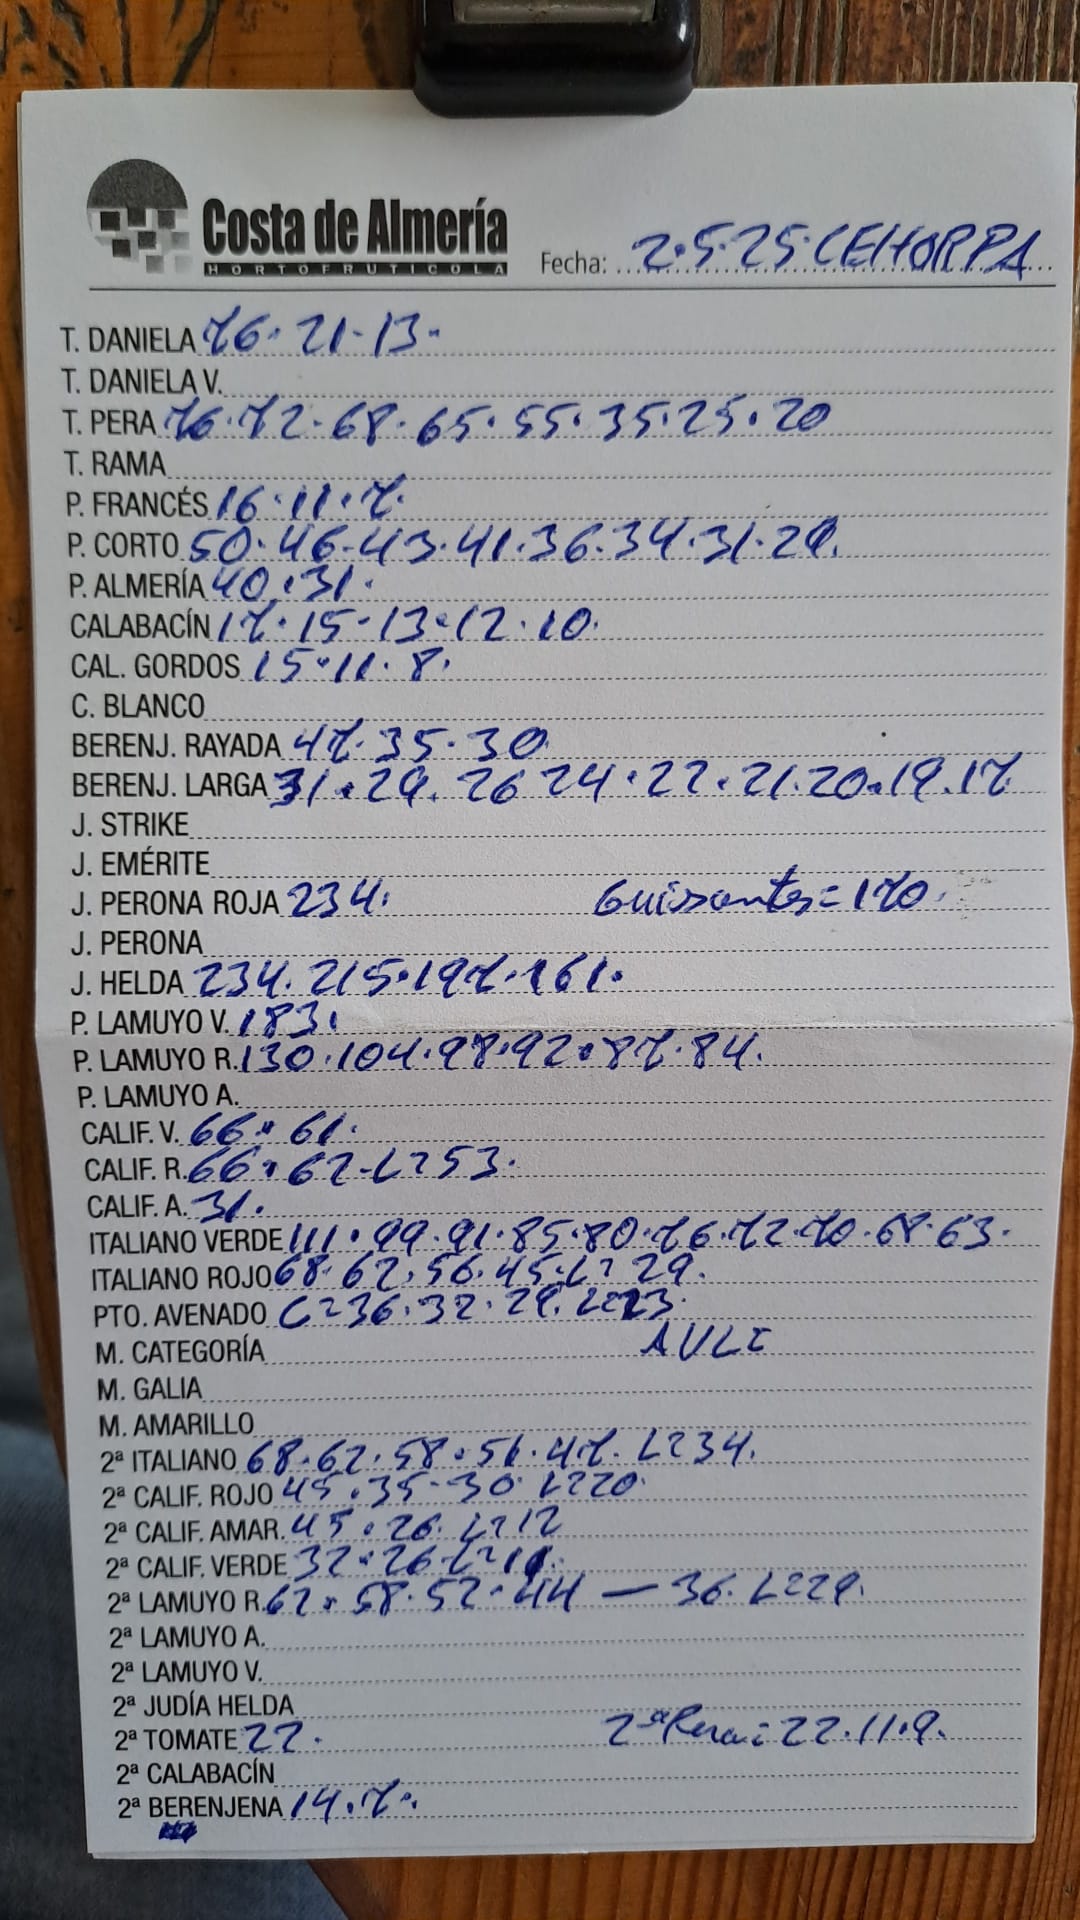 Costa de Almería
HORTOFRUTICOLA
Fecha: 2.5.25 CEHORPA
T. DANIELA 76. 21-13.
T. DANIELA V.
T. PERA 76.72.68.65.55.35.25.20
T. RAMA
P. FRANCÉS 16.11.7.
P. CORTO 50.46-43.41.36.34.31.29.
P. ALMERÍA 40.31.
CALABACÍN 17.15-13.12.10.
CAL. GORDOS 15.11.8.
C. BLANCO
BERENJ. RAYADA 47.35.30
BERENJ. LARGA 31.29.26 24.22.21.20.19.17.
J. STRIKE
J. EMÉRITE
J. PERONA ROJA 234. Guissantes=170.
J. PERONA
J. HELDA 234.215.197.161.
P. LAMUYO V. 183.
P. LAMUYO R. 130.104.98.92.87.84.
P. LAMUYO A.
CALIF. V. 66.61.
CALIF. R. 66.62-L=53.
CALIF. A. 31.
ITALIANO VERDE 111.99.91.85.80.76.72.70.68.63.
ITALIANO ROJO 68.62.56.45.L=29.
PTO. AVENADO C=36.32.29.L=23.
M. CATEGORÍA
M. GALIA
M. AMARILLO
2ª ITALIANO 68.62.58.51.47. L=34.
2ª CALIF. ROJO 45.35-30 L=20.
2ª CALIF. AMAR. 45.26. L=12
2ª CALIF. VERDE 32.26-L=11.
2ª LAMUYO R. 62.58.52.44 — 36. L=29.
2ª LAMUYO A.
2ª LAMUYO V.
2ª JUDÍA HELDA
2ª TOMATE 22. 2ª Pera: 22.11.9.
2ª CALABACÍN
2ª BERENJENA 14.7.